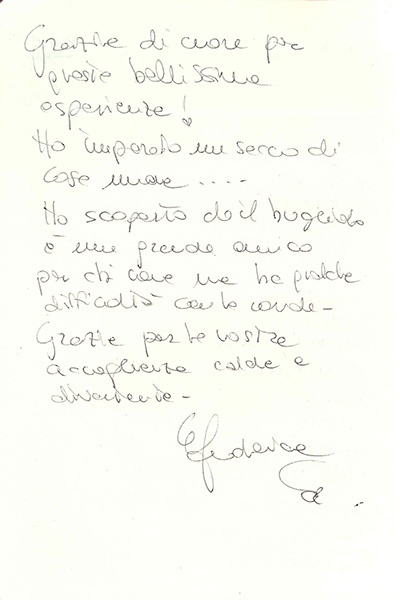 Grazie di cuore per
questa bellissima
esperienza!
Ho imparato un sacco di
cose nuove ....
Ho scoperto che il bugiardo
è un grande amico
per chi come me ha qualche
difficoltà con le corde-
Grazie per la vostra
accoglienza calda e
divertente-
Federica